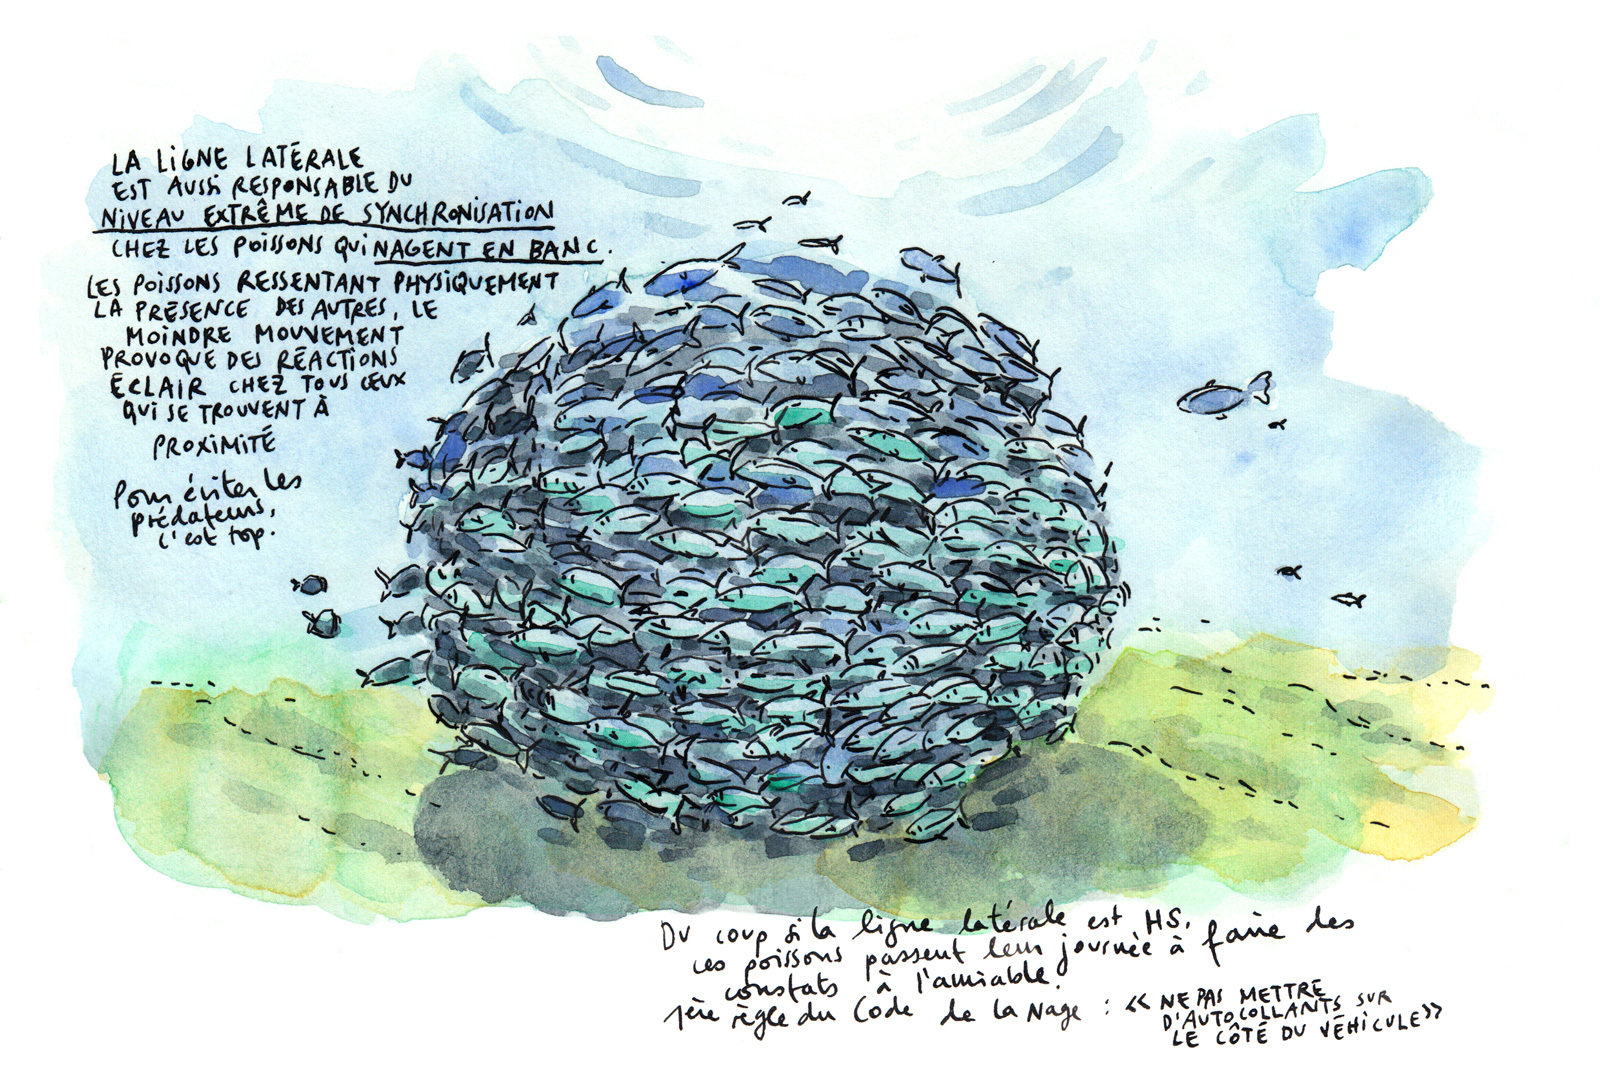 LA LIGNE LATÉRALE
EST AUSSI RESPONSABLE DU
NIVEAU EXTRÊME DE SYNCHRONISATION
CHEZ LES POISSONS QUI NAGENT EN BANC.
LES POISSONS RESSENTANT PHYSIQUEMENT
LA PRÉSENCE DES AUTRES, LE
MOINDRE MOUVEMENT
PROVOQUE DES RÉACTIONS
ÉCLAIR CHEZ TOUS CEUX
QUI SE TROUVENT À
PROXIMITÉ
Pour éviter les
prédateurs,
c'est top.
DU coup si la ligne latérale est HS,
les poissons passent leur journée à faire des
constats à l'amiable.
1ère règle du Code de la Nage : « NE PAS METTRE
D'AUTOCOLLANTS SUR
LE CÔTÉ DU VÉHICULE »